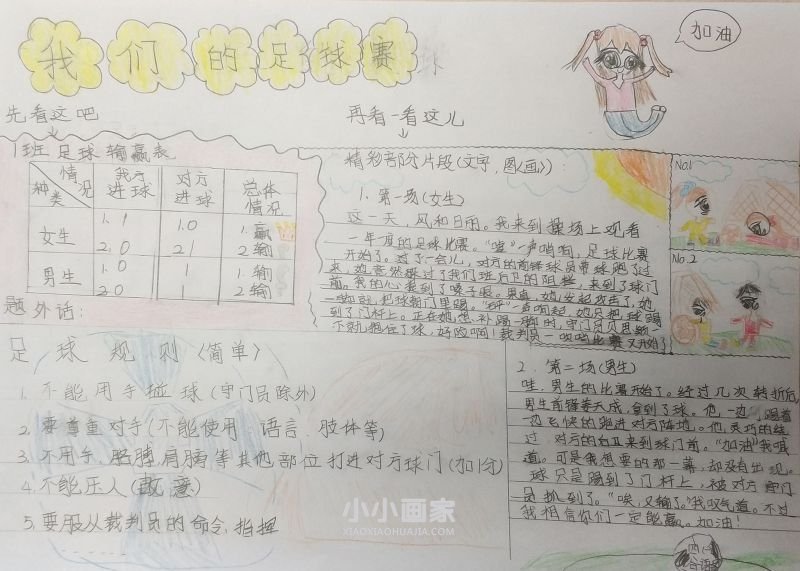 我们的足球赛
加油
先看这吧
再看一看这儿
1班足球输赢表
情况 种类 我方进球 对方进球 总体情况
女生 1. 1 1. 0 1. 赢
2. 0 2. 1 2. 输
男生 1. 0 1 1. 输
2. 0 1 2. 输
题外话:
精彩部分片段(文字,图《画》):
1. 第一场(女生)
这一天,风和日丽。我来到操场上观看
一年度的足球比赛。“嘟”一声哨响,足球比赛
开始了。过了一会儿,对方的前锋球员带球跑了过
来,她竟然躲过了我们班后卫的阻拦,来到了球门
前。我的心提到了嗓子眼。果真,她发起攻击了,她
一脚就把球朝门里踢,“砰”一声响起,她只把球踢
到了门杆上。正在她想补踢一脚时,守门员贝思颖一
下就抱住了球,好险啊!裁判员一吹哨比赛又开始了
No.1
No.2
足球规则〈简单〉
1. 不能用手碰球(守门员除外)
2. 要尊重对手(不能使用语言、肢体等)
3. 不用手、胳膊,肩膀等其他部位打进对方球门(加1分)
4. 不能压人(故意)
5. 要服从裁判员的命令,指挥
2. 第二场(男生)
哇,男生的比赛开始了。经过几次转折后,
男生前锋姜天成,拿到了球。他,一边踢着
一边飞快的跑进对方阵地。他,灵巧的绕
过对方的后卫来到球门前。“加油”我喊
道。可是我想要的那一幕,却没有出现。
球只是踢到了门杆上,被对方守门
员抓到了。“唉,又输了。”我叹气道。不过
我相信你们一定能赢。加油!
小小画家
XIAOXIAOHUAJIA.COM